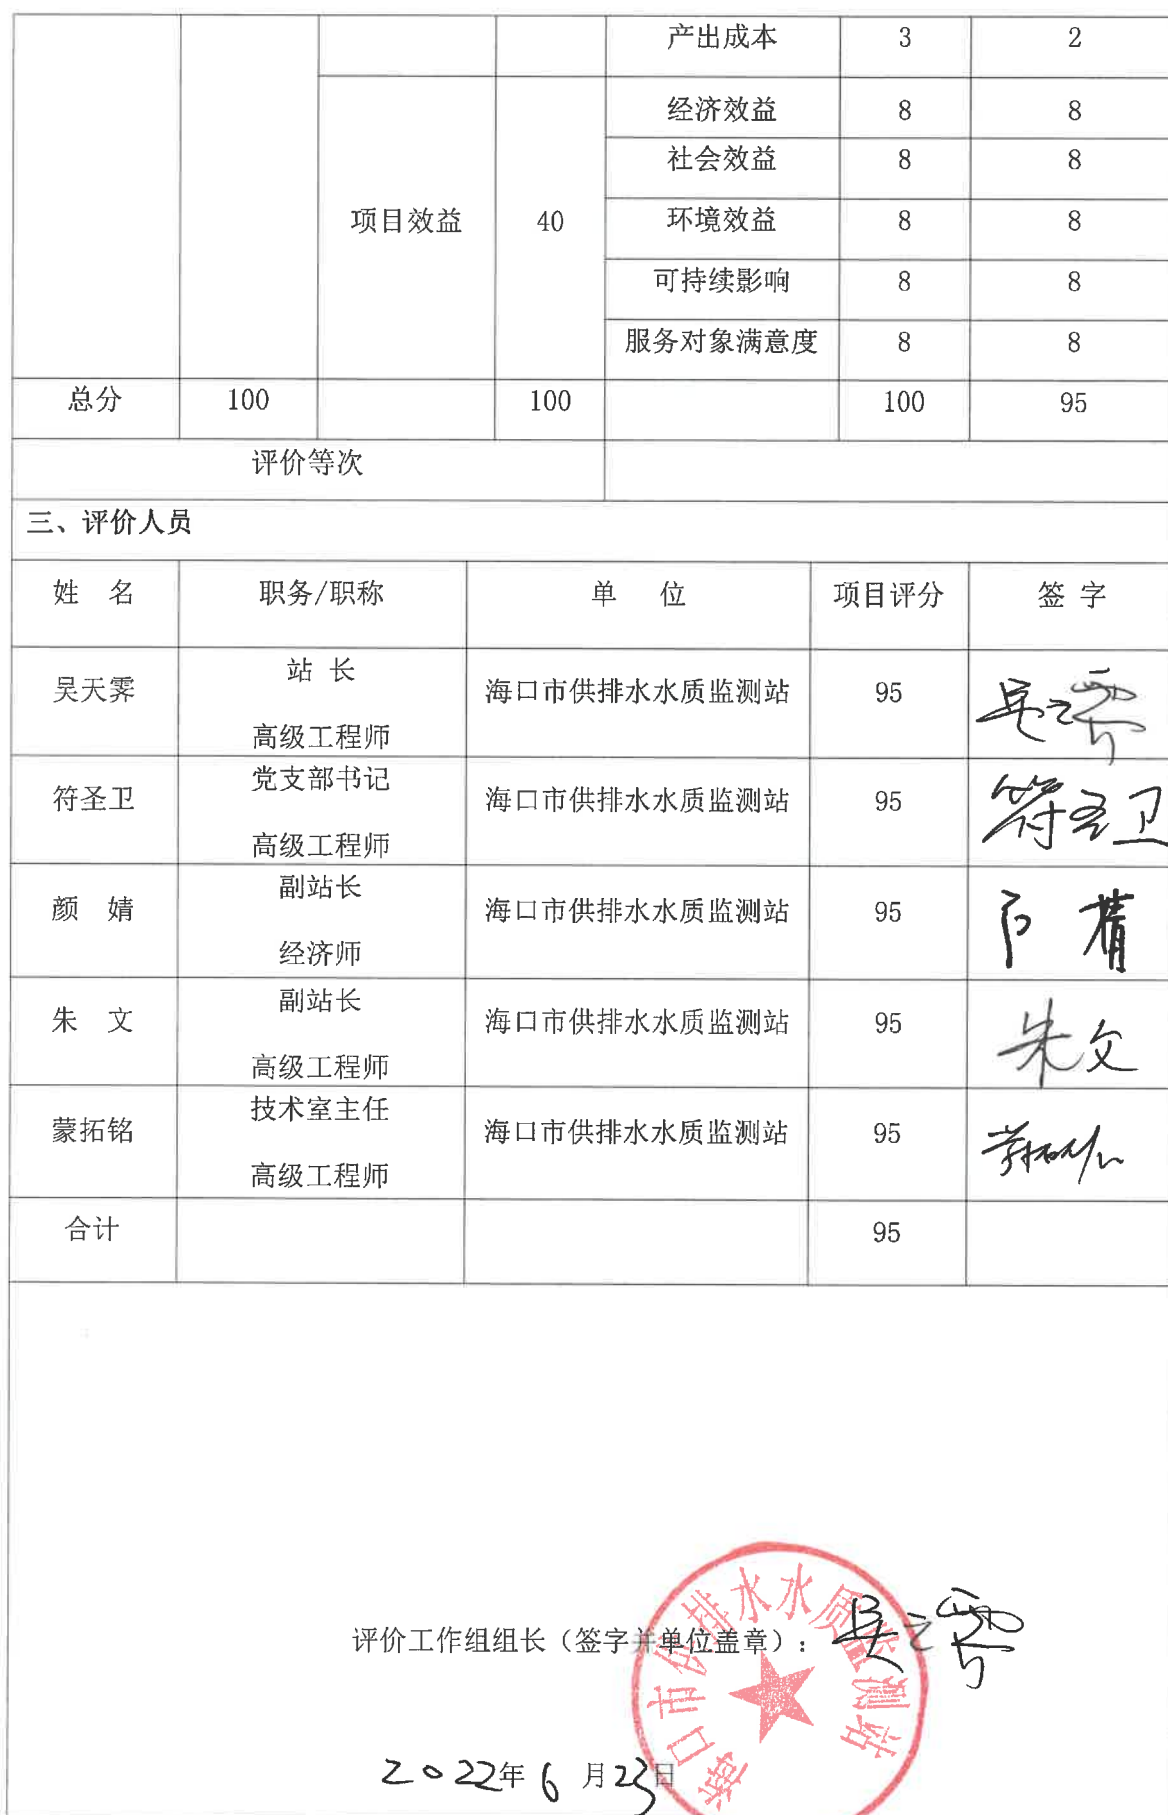 产出成本 3 2
经济效益 8 8
社会效益 8 8
项目效益 40 环境效益 8 8
可持续影响 8 8
服务对象满意度 8 8
总分 100 100 100 95
评价等次
三、评价人员
姓 名 职务/职称 单 位 项目评分 签 字
吴天霁 站 长 高级工程师 海口市供排水水质监测站 95
符圣卫 党支部书记 高级工程师 海口市供排水水质监测站 95 符圣卫
颜 婧 副站长 经济师 海口市供排水水质监测站 95
朱 文 副站长 高级工程师 海口市供排水水质监测站 95 朱文
蒙拓铭 技术室主任 高级工程师 海口市供排水水质监测站 95
合计 95
评价工作组组长（签字并单位盖章）：
海口市供排水水质监测站
2022年6月23日